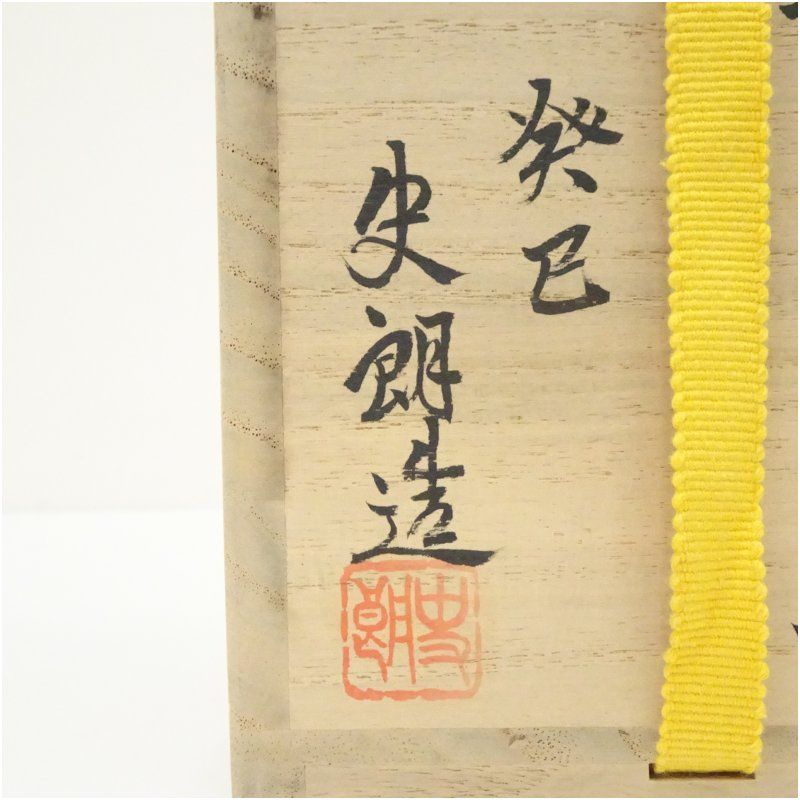 癸巳
史朗造
史朗